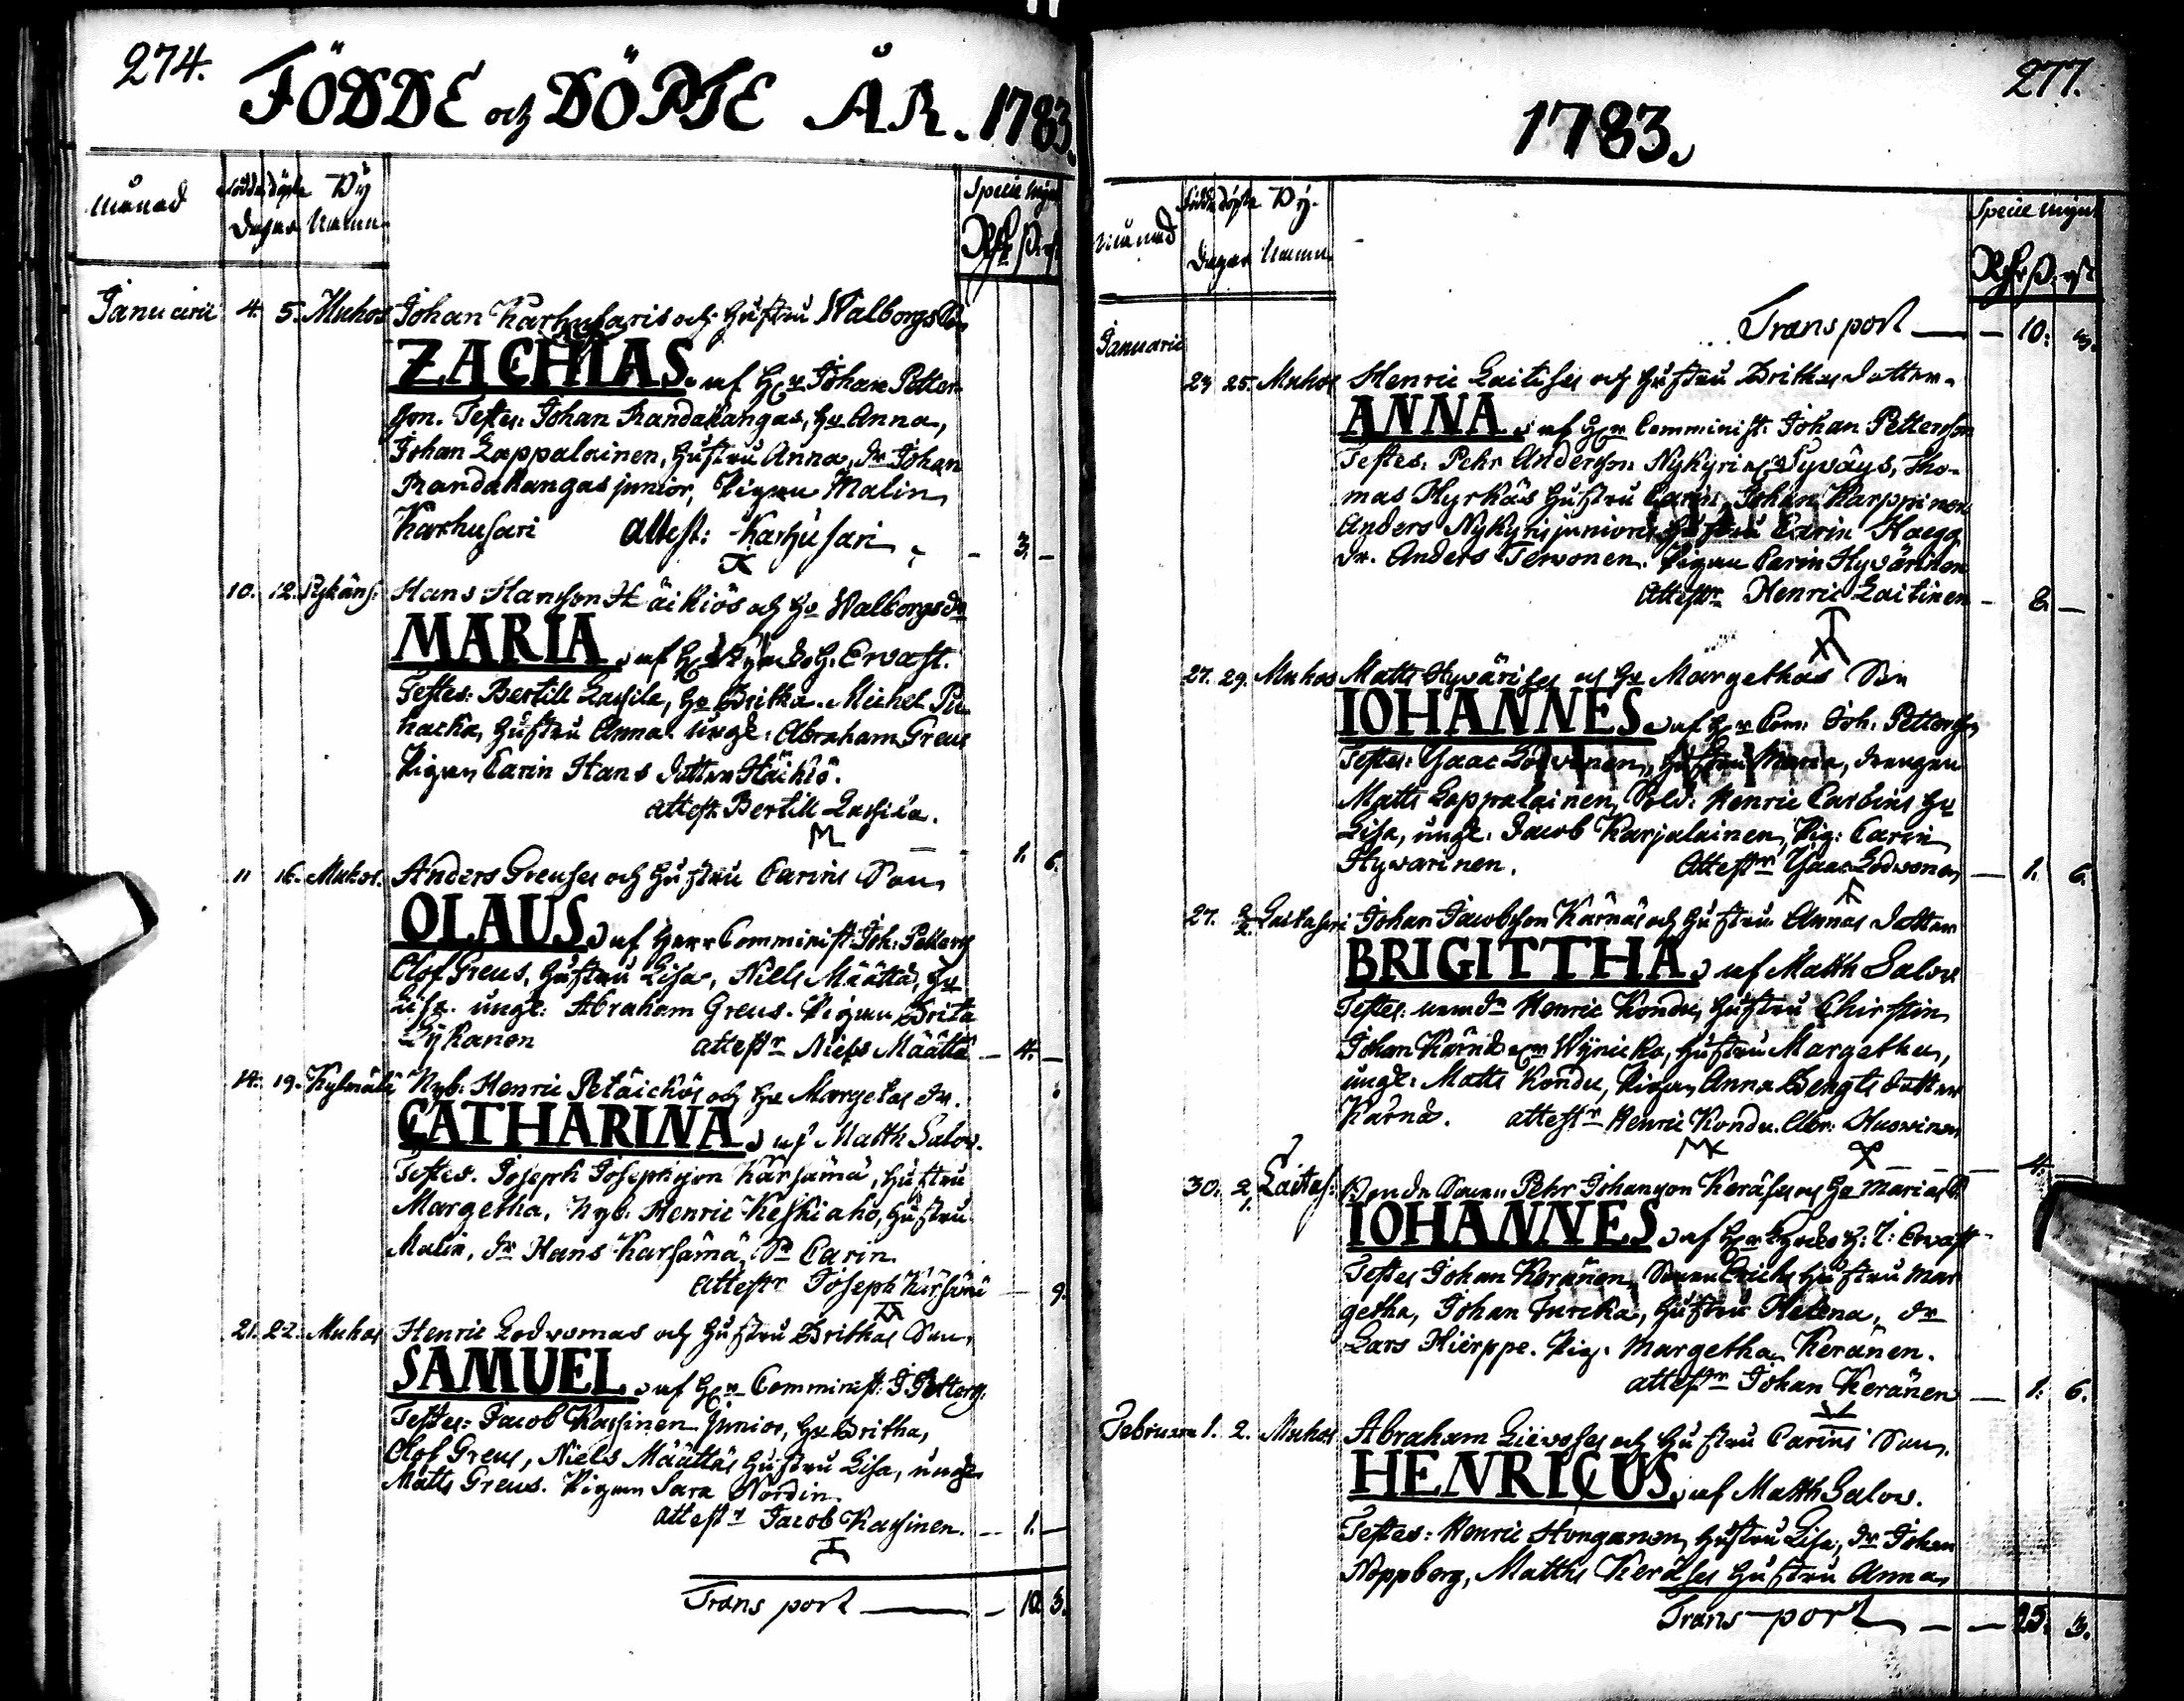 274.
FÖDDE och DÖPTE ÅR. 1783.
Månad Födde döpte By Specie mynt
Dagar Namn Rdr ß. rst
Januarii 4. 5. Muhos Johan Karhusaris och Hustru Walborgs Son
ZACHIAS. af Hr Johan Petter
son. Testes: Johan Randakangas, Hu Anna,
Johan Lappalainen, Hustru Anna, dr Johan
Randakangas junior, Pigan Malin
Karhusari attest: Karhusari - 3. -
10. 12. Kykäns: Hans Hansson Häikiös och Hu Walborgs dr
MARIA, af Hr Ervast.
Testes: Bertill Lassila, Hu Britha. Michel Pu
hacka, Hustru Anna. ungk: Abraham Greus
Pigan Carin Hans dotter Häikiö.
attest Bertill Lassila.
1. 6.
11 16. Muhos. Anders Greuses och Hustru Carins Son
OLAUS, af Herr Comminist: Joh: Petters
Olof Greus, Hustru Lisa, Niels Määttä, Hu
Lisa. ungk: Abraham Greus. Pigan Brita
Lykanen attestr Niels Määttä - 4. -
14. 19. Kylmälä Nyb: Henric Petäickös och Hu Margetas dr.
CATHARINA, af Matth Salov.
Testes. Joseph Josephsson Karsämä, Hustru
Margetha. Nyb. Henric Keskiaho, Hustru
Malin, dr Hans Karsämä, P. Carin.
attestr Joseph Karsämä - 9.
21. 22. Muhos Henric Lodvonas och Hustru Brithas Son,
SAMUEL, af Hr Comminist: J Petters:
Testes: Jacob Kassinen junior, Hu Britha,
Olof Greus, Niels Määttäs Hustru Lisa, ungk
Matts Greus. Pigan Sara Nordin.
attestr Jacob Kassinen. - 1. -
Trans port - 10. 3.
277.
1783.
Månad Födde döpte By. Specie mynt
Dagar Namn Rdr ß. rst
Transport - 10: 3.
Januarii
23 25. Muhos Henric Laitises och Hustru Brithas dotter
ANNA, af Hr Comminist: Johan Petterson
Testes: Pehr Anderson Nykyri Sywäys, Tho-
mas Kyrkäs Hustru Carin, Johan Karppinen
Anders Nykyris juniores Hustru Carin Haegg
dr. Anders Tervonen. Pigan Carin Hyvärinen
Attestr Henric Laitinen - 2. -
27. 29. Muhos Matts Hyvärises och Hu Margethas Son
IOHANNES, af Hr Com: Joh. Petterson
Testes: Ysaac Lodvonen, Hustru Maria, drengen
Matts Lappalainen, Sold: Henric Carbins Hu
Lisa, ungk: Jacob Karjalainen, Pig: Carin
Hyvarinen. Attestr Ysaac Lodvonen - 1. 6.
27. 2/2. Laitasari Johan Jacobsson Kärnäs och Hustru Annas dotter
BRIGITTHA, af Matth Salov
Testes: nemdn Henric Kondu, Hustru Chirstin
Johan Kärnä Wynicka, Hustru Margetha,
ungk: Matts Kondu, Pigan Anna Bengts dotter
Kärnä. attestr Henric Kondu. Abr: Huovinen
- 4.
30. 2/2. Laitas: Bonde Sonen Pehr Johansson Keräses och Hu Marias S.
IOHANNES, af Hr H: J: Ervast
Testes Johan Keränen, Sonen Erichs Hustru Mar
getha, Johan Turcka, Hustru Helena, dr
Lars Hierppe. Pig. Margetha Keränen.
attestr Johan Keränen - 1. 6.
Februarii 1. 2. Muhos Abraham Lievoses och Hustru Carins Son.
HENRICUS, af Matth Salov.
Testes: Henric Honganen, Hustru Lisa, dr Johan
Noppberg, Matths Keräses Hustru Anna,
Trans-port - - 25. 3.